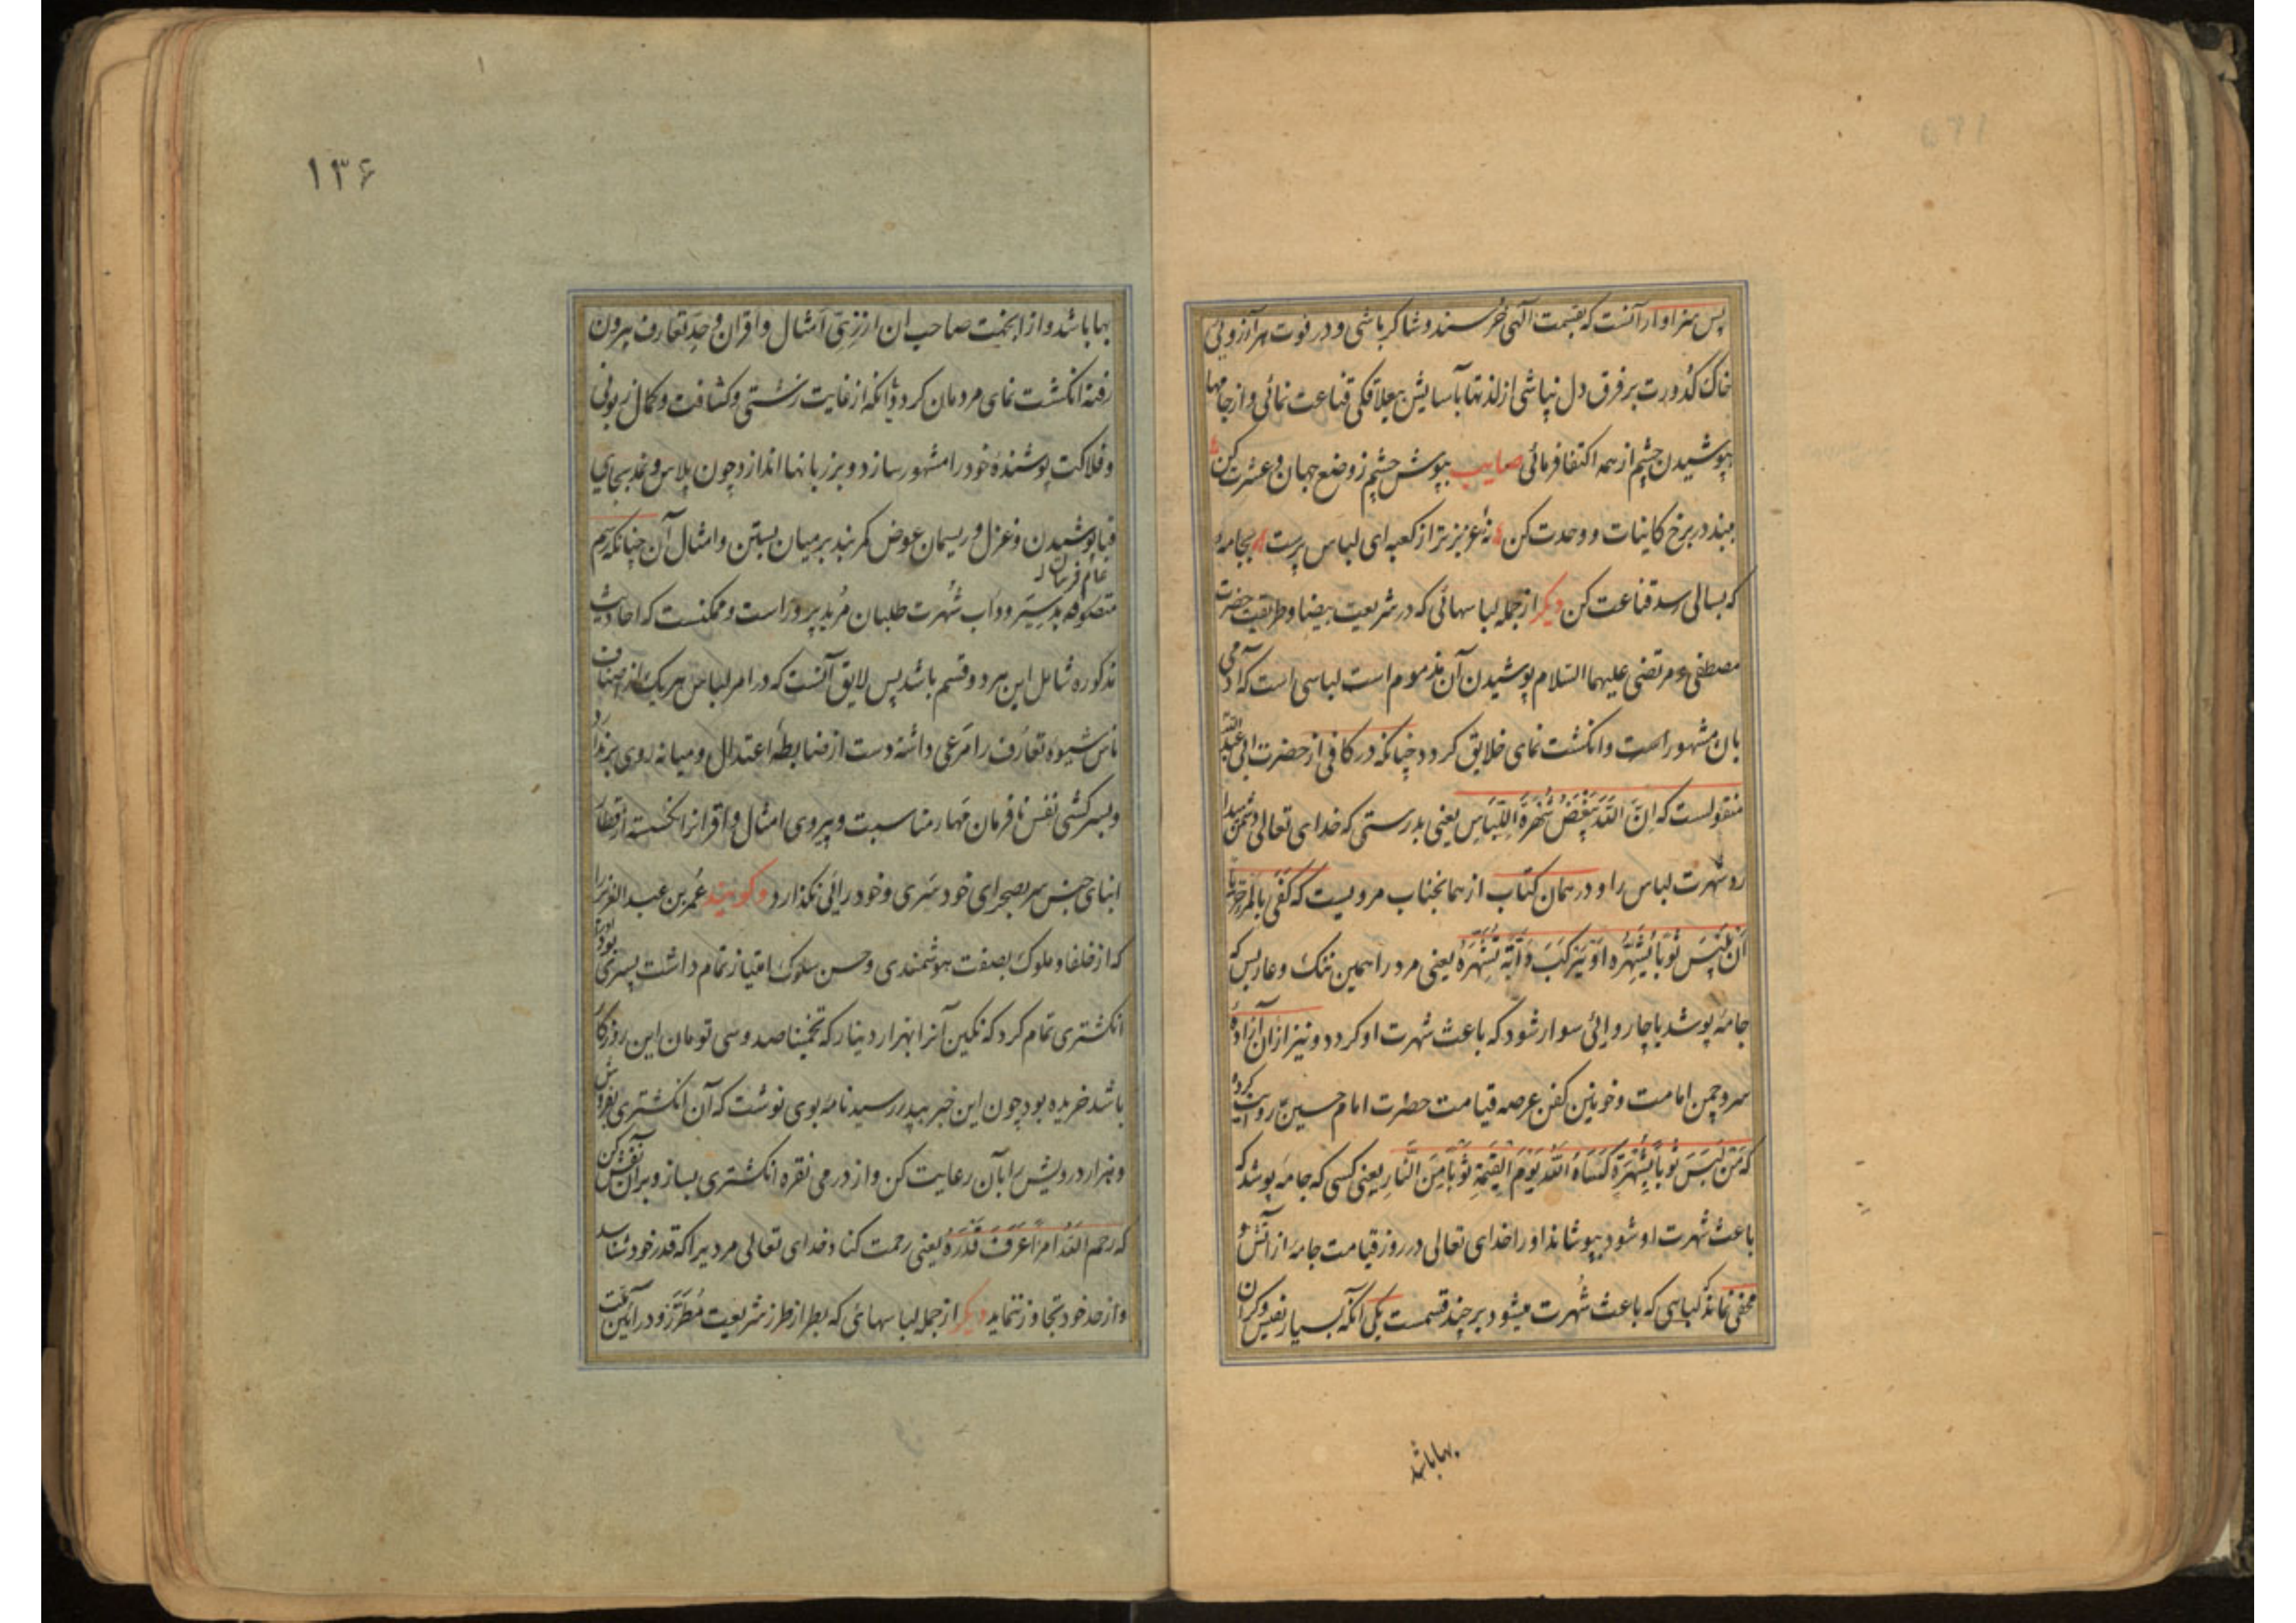 پس سزاوار آنست که بقسمت الهی خرسند و شاکر باشی و در فوت هر آرزویی
خاک کدورت بر فرق دل نپاشی از لذتها بآسایش بیعلاقگی قناعت نمائی و از جامها
بپوشیدن چشم از همه اکتفا فرمائی صایب بپوش چشم ز وضع جهان و عشرت کن
مبند در برخ کاینات و وحدت کن نهٔ عزیزتر از کعبه ای لباس پرست بجامهٔ
که بسالی رسد قناعت کن دیگر از جمله لباسهائی که در شریعت بیضا و طریقت حضرت
مصطفی و مرتضی علیهما السلام پوشیدن آن مذموم است لباسی است که آدمی
بان مشهور است و انکشت نمای خلایق کردد چنانکه در کافی از حضرت ابی عبدالله
منقولست که اِنَّ اللّهَ یَبْغَضُ شُهْرَةَ اللِّبَاسِ یعنی بدرستی که خدای تعالی دشمن میدا
رد شهرت لباس را و در همان کتاب از همانجناب مرویست که کَفَی بالمَرْءِ خِزْیًا
اَنْ یَلْبَسَ ثَوْبًا یُشْهِرُهُ اَوْ یَرْکَبَ دَابَّةً تُشْهِرُهُ یعنی مرد را همین ننک و عار بس که
جامهٔ پوشد یا چاروائی سوار شود که باعث شهرت او کردد و نیز از آن آزادهٔ
سرو چمن امامت و خونین کفن عرصه قیامت حضرت امام حسین روایت کرده
که مَنْ لَبِسَ ثَوْبًا یُشْهِرُهُ کَسَاهُ اللّهُ یَوْمَ الْقِیٰمَةِ ثَوْبًا مِنَ النَّارِ یعنی کسی که جامهٔ پوشد که
باعث شهرت او شود بپوشاند او را خدای تعالی در روز قیامت جامهٔ از آتش و
مخفی نماند که لباسی که باعث شهرت میشود بر چند قسمست یکی آنکه بسیار نفیس و کران
بها باشد
۱۳۶
بها باشد و از انجهت صاحب ان از زیّ امثال و اقران و حدّ تعارف بیرون
رفته انکشت نمای مردمان کردد و آنکه از غایت زشتی و کثافت و کمال زبونی
و فلاکت پوشندهٔ خود را مشهور سازد و بر زبانها اندازد چون پلاس و نمد بجای
قبا پوشیدن و غزل و ریسمان عوض کمربند بر میان بستن و امثال آن چنانکه رسم
متصوفه بد سیَر و داب شهرت طلبان مرید پرور است و ممکنست که احادیث
مذکوره شامل این هر دو قسم باشد پس لایق آنست که در امر لباس هر یک از اصناف
ناس شیوه تعارف را مرعی داشته دست از ضابطهٔ اعتدال و میانه روی برندارد
و بسرکشی نفس نافرمان مهار مناسبت و پیروی امثال و اقرانرا نکسسته از قطار
ابنای جنس سر بصحرای خود سری و خود رائی نکذارد و کویند عمر بن عبد العزیز را
که از خلفا و ملوک بصفت هوشمندی و حسن سلوک امتیاز تمام داشت پسری بود او
انکشتری تمام کرد که نکین آنرا بهزار دینار که تخمینا صد و سی تومان این روزکار
باشد خریده بود چون این خبر بپدر رسید نامه بوی نوشت که آن انکشتری بفروش
و هزار درویش را بآن رعایت کن و از درمی نقره انکشتری بساز و بر آن نقش کن
که رحم اللّهُ امْرَأً عَرَفَ قَدْرَهُ یعنی رحمت کناد خدای تعالی مردیرا که قدر خود شناسد
و از حد خود تجاوز ننماید دیگر از جمله لباسهائی که بطراز طرز شریعت مُطَرَّز و در آیین